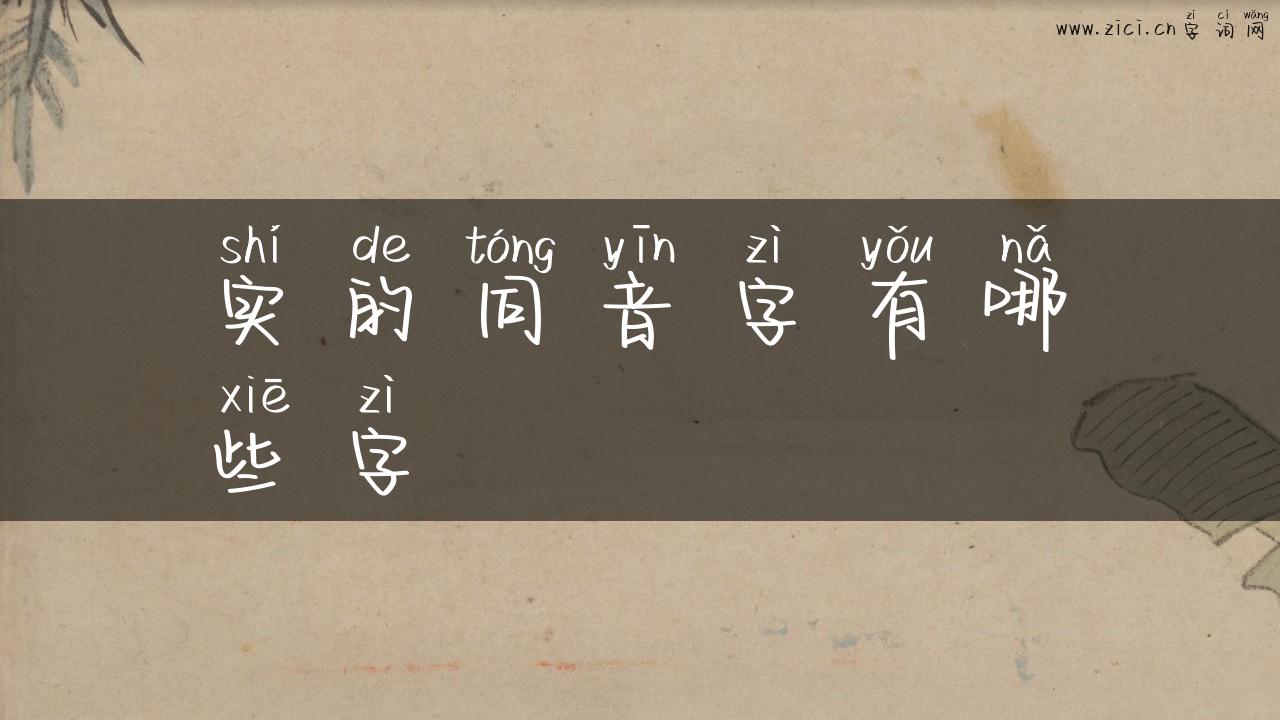 zì cí wǎng
www.zici.cn 字 词 网
shí de tóng yīn zì yǒu nǎ
实 的 同 音 字 有 哪
xiē zì
些 字